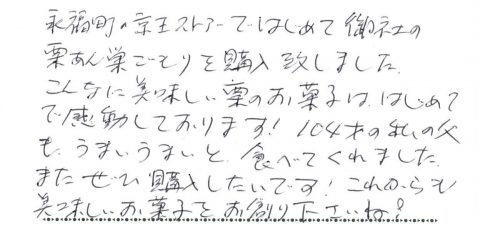 永福町の京王ストアーではじめて御社の
栗あん巣ごもりを購入致しました。
こんなに美味しい栗のお菓子は、はじめて
で感動しております！104才の私の父
も、うまいうまいと、食べてくれました。
またぜひ購入したいです！これからも
美味しいお菓子をお創り下さいね！